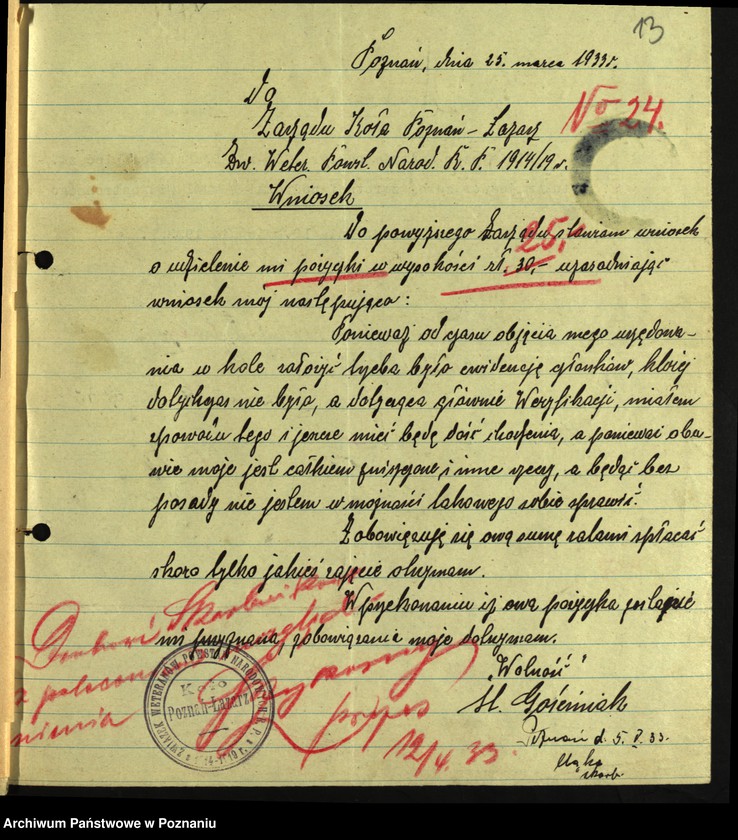 13
Poznań, dnia 25. marca 1933r.
Do
Zarządu Koła Poznań – Łazarz
No 24.
Zw. Weter. Powst. Narod. R. P. 1914/19 r.
Wniosek
Do powyższego Zarządu stawiam wniosek
25.-
o udzielenie mi pożyczki w wysokości zł. 30,- uzasadniając
wniosek mój następująco:
Ponieważ od czasu objęcia mego urzędowa-
nia w kole założyć trzeba było ewidencję członków, której
dotychczas nie było, a dotycząca głównie Weryfikacji, miałem
z powodu tego i jeszcze mieć będę dość chodzenia, a ponieważ obu-
wie moje jest całkiem zniszczone i inne rzeczy, a będąc bez
posady nie jestem w możności takowego sobie sprawić.
Zobowiązuję się ową sumę ratami spłacać
skoro tylko jakieś zajęcie otrzymam.
W przekonaniu iż owa pożyczka zostanie
mi przyznana, zobowiązanie moje dotrzymam.
"Wolność"
St. Gościniak
Skarbnikowi
z polecenia
prezes
12/4. 33.
ZWIĄZEK WETERANÓW POWSTAŃ NARODOWYCH R. P. z r. 1914-1919 r.
Koło
Poznań-Łazarz
Poznań d. 5. V. 33.
skarb.
Archiwum Państwowe w Poznaniu